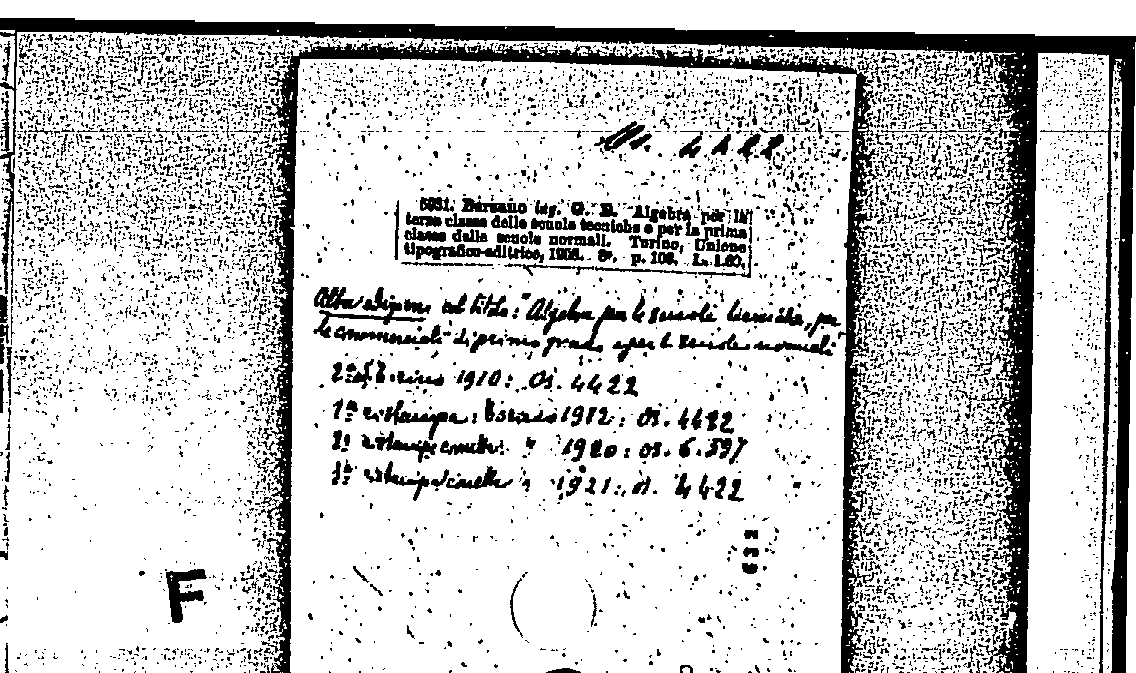 4422
5931. Bersano ing. G. B. Algebra per la
terza classe delle scuole tecniche e per la prima
classe delle scuole normali. Torino, Unione
tipografico-editrice, 1908. 8°. p. 108. L. 1.60.
Altra edizione col titolo: "Algebra per le scuole tecniche, per
le commerciali di primo grado e per le scuole normali"
1910: 4422
1ª ristampa: Torino 1912: 4422
ristampa " 1920: 6.597
3ª ristampa " 1921: 4422
F